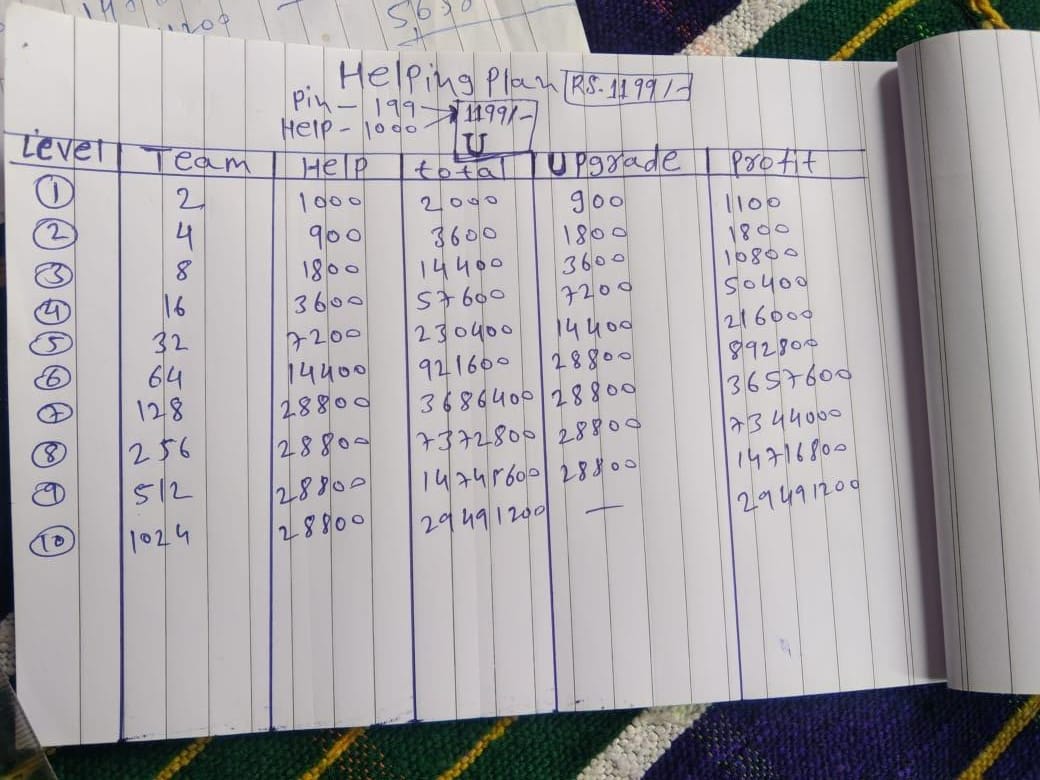 5650
1200
Helping Plan RS. 1199/-
Pin - 199 → 1199/-
Help - 1000 U
Level Team Help total Upgrade Profit
1 2 1000 2000 900 1100
2 4 900 3600 1800 1800
3 8 1800 14400 3600 10800
4 16 3600 57600 7200 50400
5 32 7200 230400 14400 216000
6 64 14400 921600 28800 892800
7 128 28800 3686400 28800 3657600
8 256 28800 7372800 28800 7344000
9 512 28800 14745600 28800 14716800
10 1024 28800 29491200 — 29491200